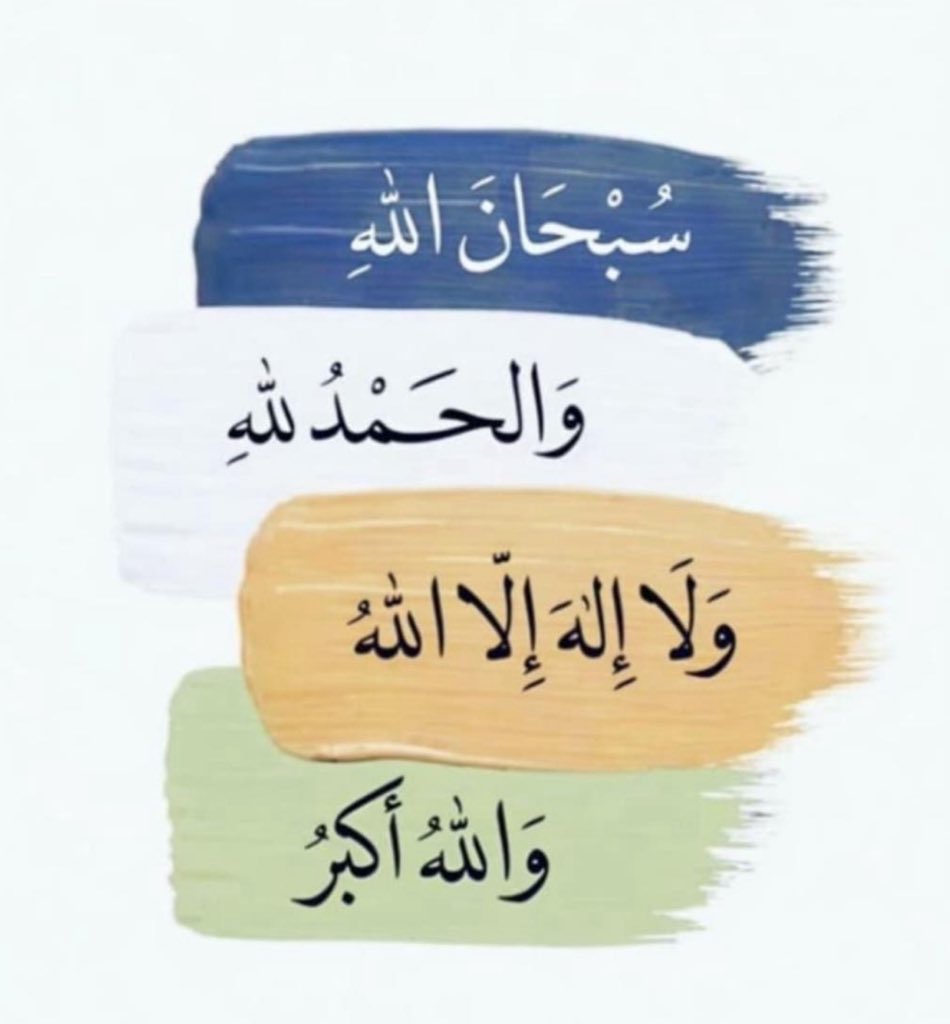 سُبْحَانَ اللهِ
وَالحَمْدُ للهِ
وَلَا إِلٰهَ إِلّا اللهُ
وَاللهُ أَكبرُ